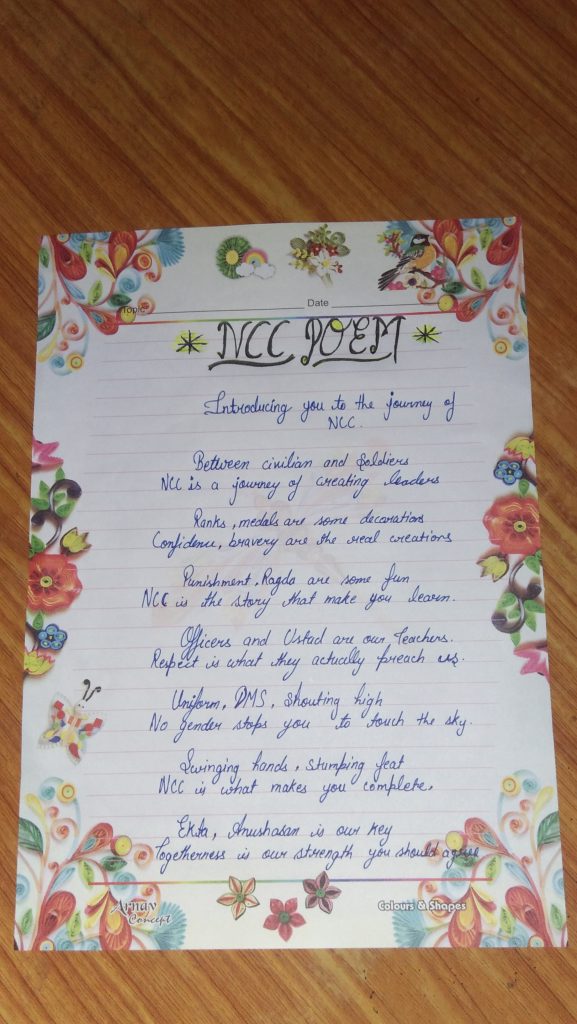 Topic Date
NCC POEM
Introducing you to the journey of
NCC.
Between civilian and Soldiers
NCC is a journey of creating leaders
Ranks, medals are some decorations
Confidence, bravery are the real creations
Punishment, Ragda are some fun
NCC is the story that make you learn.
Officers and Ustad are our Teachers.
Respect is what they actually preach us.
Uniform, DMS, Shouting high
No gender stops you to touch the sky.
Swinging hands, Stumping feat
NCC is what makes you complete.
Ekta, Anushasan is our key
Togetherness is our strength you should agree
Arnav Colours & Shapes
Concept